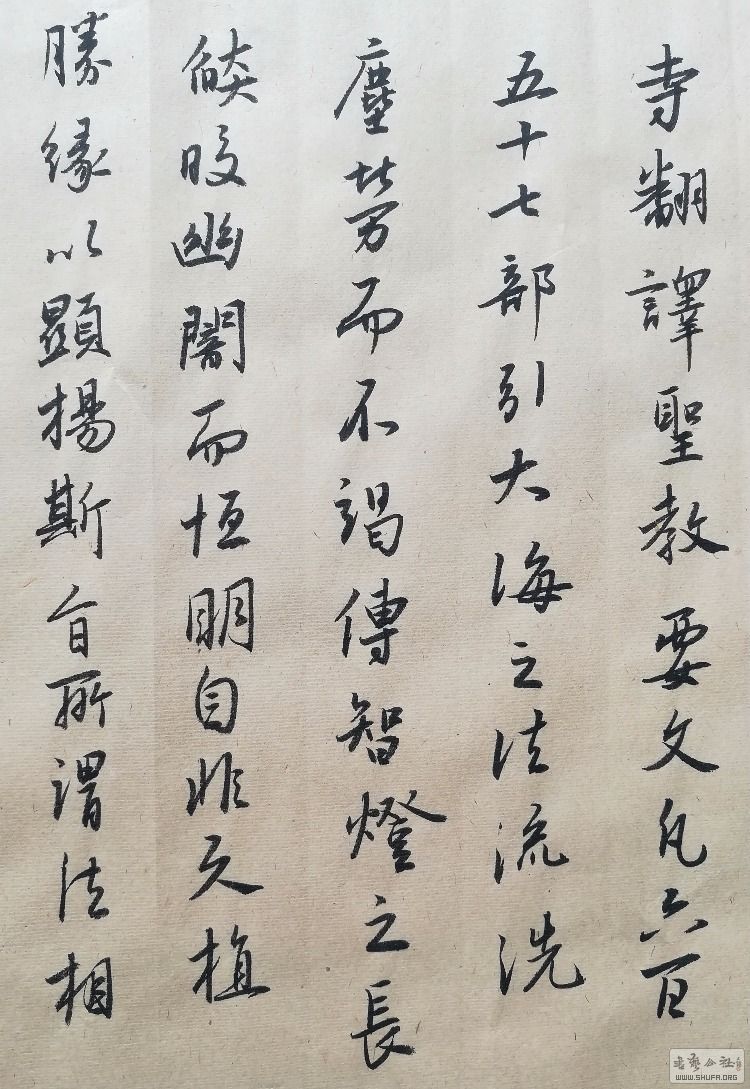 寺翻譯聖教要文凡六百
五十七部引大海之法流洗
塵勞而不竭傳智燈之長
燄皎幽闇而恒明自非久植
勝緣以顯揚斯旨所謂法相
書藝公社
WWW.SHUFA.ORG